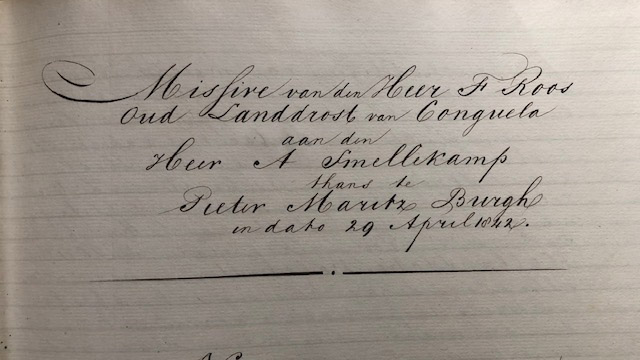 Missive van den Heer F Roos
Oud Landdrost van Conguela
aan den
Heer A Smellekamp
thans te
Pieter Maritz Burgh
in dato 29 April 1842.